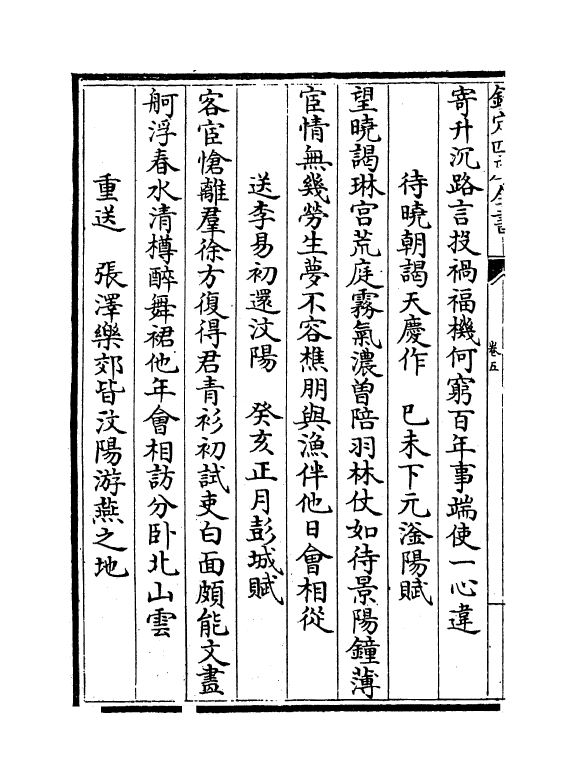 欽定四庫全書
卷五
寄升沉路言投禍福機何窮百年事端使一心違
待曉朝謁天慶作　已未下元滏陽賦
望曉謁琳宫荒庭霧氣濃曽陪羽林仗如待景陽鐘薄
宦情無幾勞生夢不容樵朋與漁伴他日會相從
送李易初還汶陽　癸亥正月彭城賦
客宦愴離羣徐方復得君青衫初試吏白面頗能文畫
舸浮春水清樽醉舞裙他年會相訪分卧北山雲
重送　張澤樂郊皆汶陽游燕之地